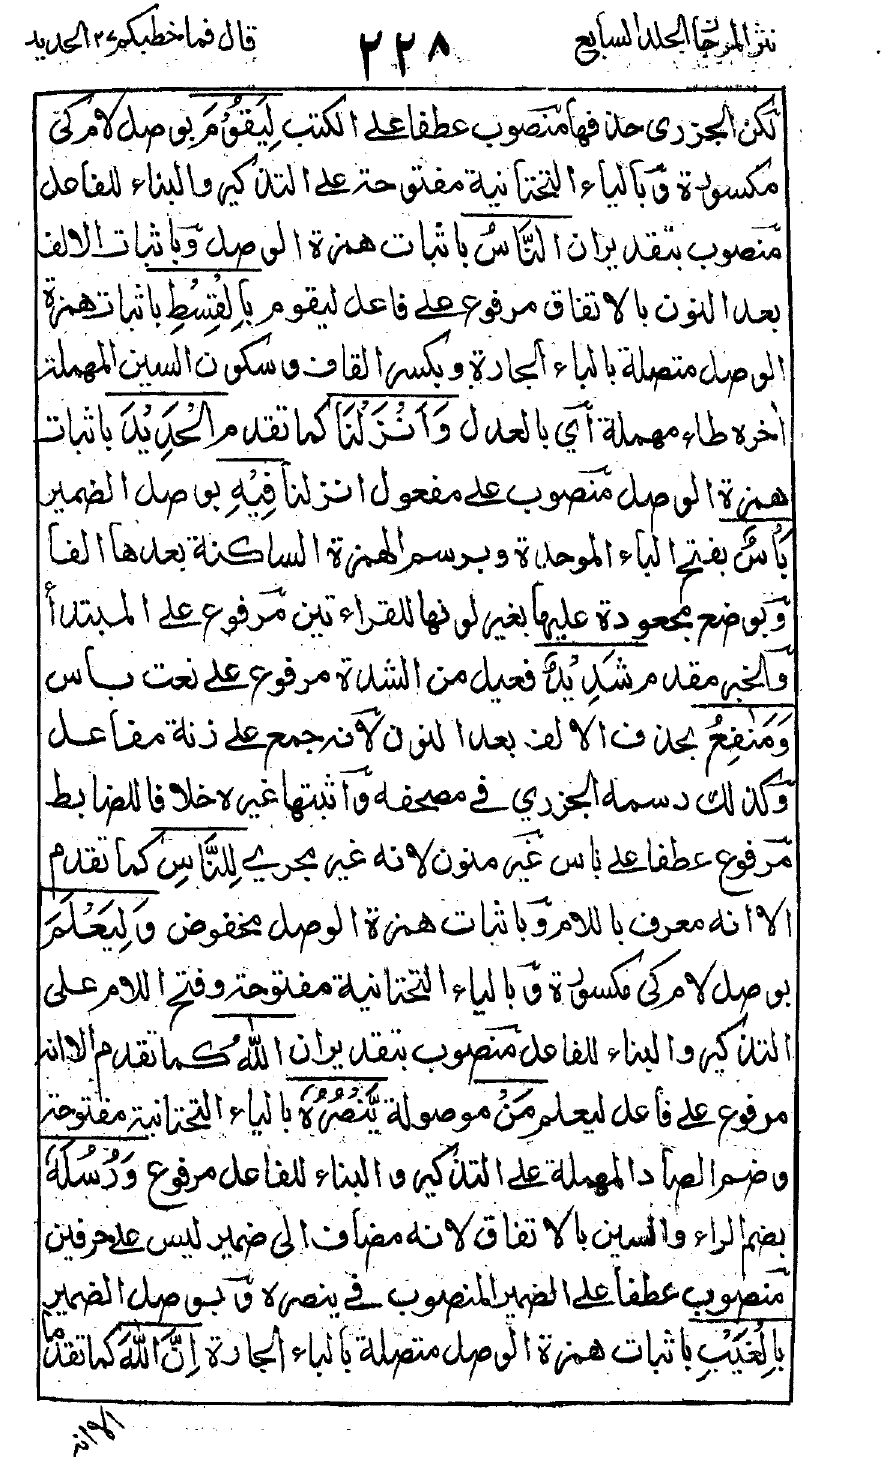 نثر المرجان المجلد السابع ٢٢٨ قال فما خطبكم ٢٧ الحديد
لكن الجزري حذفها منصوب عطفا على الكتب لِيَقُوْمَ بوصل لام كي
مكسورة وبالياء التحتانية مفتوحة على التذكير والبناء للفاعل
منصوب بتقدير ان النَّاسُ باثبات همزة الوصل وباثبات الالف
بعد النون بالاتفاق مرفوع على فاعل ليقوم بِالْقِسْطِ باثبات همزة
الوصل متصلة بالباء الجارة وبكسر القاف وسكون السين المهملة
اخره طاء مهملة اي بالعدل وَاَنْزَلْنَا كما تقدم الْحَدِيْدَ باثبات
همزة الوصل منصوب على مفعول انزلنا فِيْهِ بوصل الضمير
بَأْسٌ بفتح الباء الموحدة وبرسم الهمزة الساكنة بعدها الفا
وبوضع مجعودة عليها بغير لونها للقراءتين مرفوع على المبتدأ
والخبر مقدم شَدِيْدٌ فعيل من الشدة مرفوع على نعت باس
وَمَنٰفِعُ بحذف الالف بعد النون لانه جمع على زنة مفاعل
وكذلك رسمه الجزري في مصحفه واثبتها غيره خلافا للضابط
مرفوع عطفا على باس غير منون لانه غير مجري لِلنَّاسِ كما تقدم
الا انه معرف باللام وباثبات همزة الوصل مخفوض وَلِيَعْلَمَ
بوصل لام كي مكسورة وبالياء التحتانية مفتوحة وفتح اللام على
التذكير والبناء للفاعل منصوب بتقدير ان اللّٰهُ كما تقدم الا انه
مرفوع على فاعل ليعلم مَنْ موصولة يَّنْصُرُهٗ بالياء التحتانية مفتوحة
وضم الصاد المهملة على التذكير والبناء للفاعل مرفوع وَرُسُلَهٗ
بضم الراء والسين بالاتفاق لانه مضاف الى ضمير ليس على حرفين
منصوب عطفا على الضمير المنصوب في ينصره وبوصل الضمير
بِالْغَيْبِ باثبات همزة الوصل متصلة بالباء الجارة اِنَّ اللّٰهَ كما تقدما
الا انه